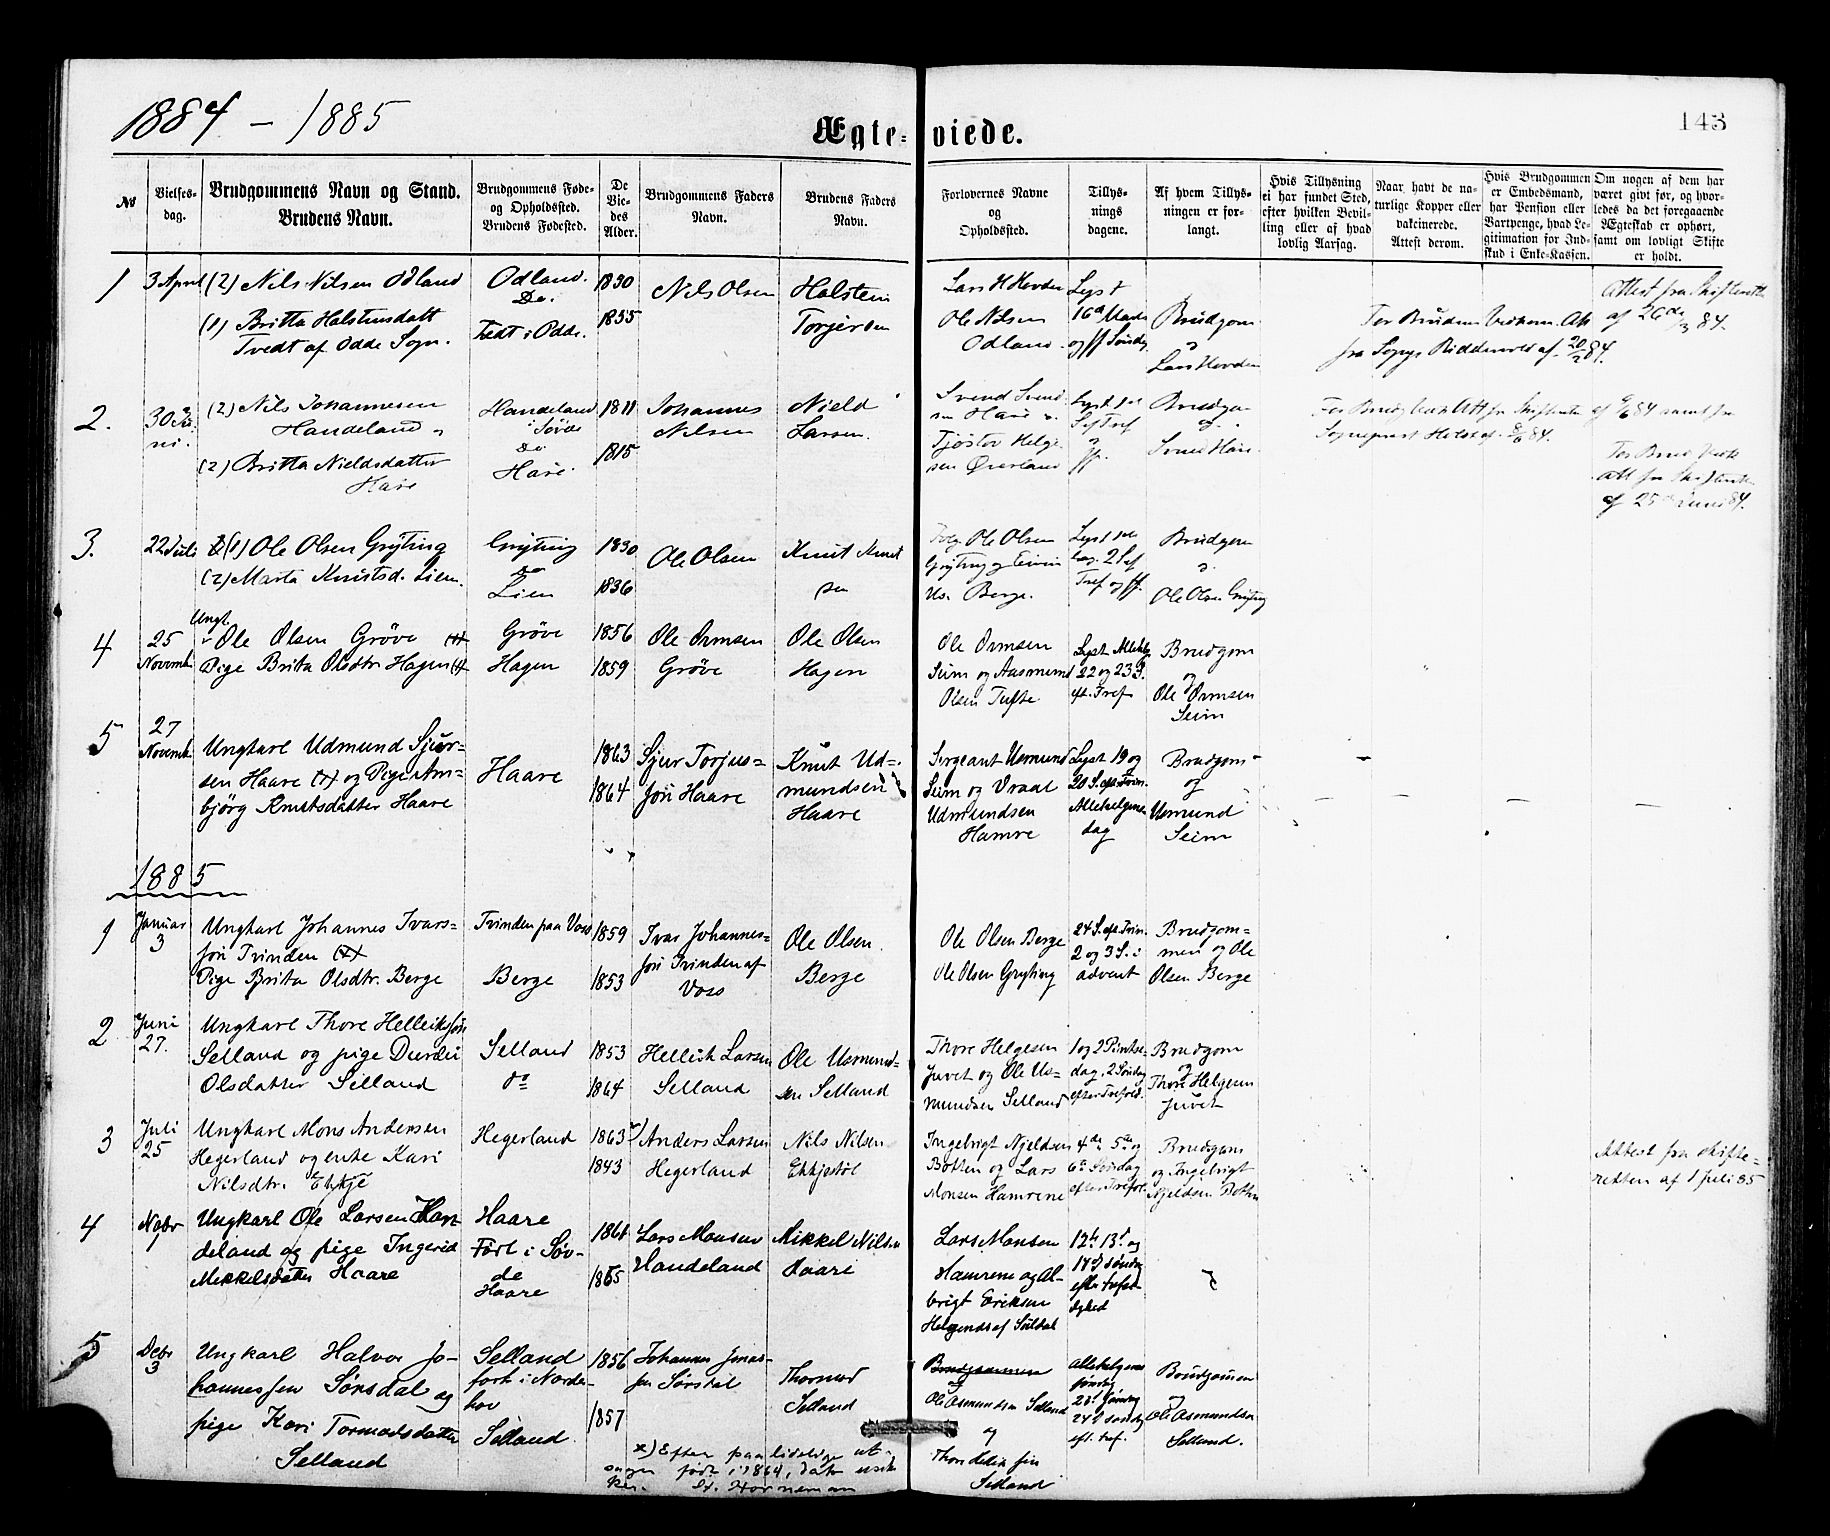 1884 – 1885
Ægte-viede.
143
№
Vielses-
dag.
Brudgommens Navn og Stand.
Brudens Navn.
Brudgommens Føde-
og Opholdssted.
Brudens Fødested.
De
Vie-
des
Alder.
Brudgommens Faders
Navn.
Brudens Faders
Navn.
Forlovernes Navne
og
Opholdssted.
Tillys-
nings
dagene.
Af hvem Tillys-
ningen er for-
langt.
Hvis Tillysning
ei har fundet Sted,
efter hvilken Bevil-
ling eller af hvad
lovlig Aarsag.
Naar havt de na-
turlige Kopper eller
vakcinerede.
Attest derom.
Hvis Brudgommen
er Embedsmand,
har Pension eller
Vartpenge, hvad Le-
gitimation for Ind-
skud i Enke-Kassen.
Om nogen af dem har
været givt før, og hvor-
ledes da det foregaaende
Ægteskab er ophørt,
samt om lovligt Skifte
er holdt.
1
3 April
(2) Nils Nilsen Odland
(1) Britta Halstensdatt
Tvedt af Odde Sogn.
Odland.
Do.
Tvedt i Odde.
1830
1835
Nils Olsen
Halstein
Torgersen
Lars H Hovden
Ole Nilsen
Odland
Lyst
16de Marts
og ff Søndg.
Brudgom
o
Lars Hovden
For Bruden Vedkom. Att
fra Sogpr Ridderwold af 20/2 84.
Attest fra Skifteretten
af 26de/3 84.
2.
30 Ju-
ni.
(2) Nils Johannesen
Handeland
(2) Britta Nieldsdatter
Hare
Handeland
i Søvde
Do
Hare.
1811
1815
Johannes
Nilsen
Nield
Larsen.
Svend Svend-
sen Hare o.
Tjøstov Helge
sen Øverland
Brudgom
og
Svend Hare
af 9/6 84 samt fra
af 25de Juni 84.
3.
22 Juli
(1) Ole Olsen Gryting
(2) Marta Knutsd. Lien.
Gryting
do
Lien
1830
1836
Ole Olsen
Knut Knut
sen
Ole Olsen
Gryting og Eivin
Berge.
Lyst
2 Sef
Tref og ff.
Brudgom
o.
Ole Olsen Gryting
4
25
Novemb.
Ungk.
Ole Olsen Grøve (1)
Pige Brita Olsdtr. Hagen (1)
Grøve
Hagen
1856
1859
Ole Ormsen
Grøve
Ole Olsen
Hagen
Ole Ormsen
Seim og Aasmund
Olsen Tufte
Lyst Allehlg.
22 og 23 S.
eft. Tref
Brudgom
og
Ole Ormsen
Seim
5
27
Novemb.
Ungkarl Udmund Sjur-
sen Haare (1) og Pige Am-
björg Knutsdatter Haare
Haare
1863
1864
Sjur Torjus-
søn Haare
Knut Ud-
mundsen
Haare
Sergeant Usmund
Seim og Vraal
Udmundsen
Hamre
Lyst 19 og
20 S. eft. Trin.
Allehelgens
dag
Brudgom
og
Usmund
Seim
1885
1
Januar
3
Ungkarl Johannes Ivars-
søn Tvinden (1)
Pige Brita Olsdtr. Berge
Tvinden paa Voss
Berge
1859
1853
Ivar Johannes-
søn Tvinden af
Voss
Ole Olsen
Berge
Ole Olsen Berge
Ole Olsen Gryting
24 S. eft. Trin.
2 og 3 S. i
advent
Brudgom-
men og Ole
Olsen Berge
2
Juni
27.
Ungkarl Thore Helleiksøn
Selland og pige Durdei
Olsdatter Selland
Selland
do
1853
1864
Helleik Larsen
Selland
Ole Usmund-
sen Selland
Thore Helgesen
Juvet og Ole Us-
mundsen Selland
1 og 2 Pintse-
dag, 2 Søndag
efter Trefold.
Brudgom
og
Thore Helgesen
Juvet
3
Juli
25
Ungkarl Mons Andersen
Hegerland og enke Kari
Nilsdtr. Ekkje
Hegerland
1863 x)
1843
Anders Larsen
Hegerland
Nils Nilsen
Ekkjestøl
Ingebrigt Njeldsen
Botten og Lars
Monsen Hamrene
4de 5te og
6te Søndag
efter Trefol.
Brudgom
og Ingebrigt
Njeldsen Botten
Attest fra skifte-
retten af 1 juli 85
4
Novbr
1
Ungkarl Ole Larsen Han
deland og pige Ingerid
Mikkelsdatter Haare
Haare
Født i Søv-
de
Haare
1861
1865
Lars Monsen
Handeland
Mikkel Nilsen
Haare
Lars Monsen
Hamrene og Al-
brigt Eriksen
Helgenes af Suldal
12te 13de og
14de søndag
efter trefol-
dighed
5
Decbr
3
Ungkarl Halvor Jo-
hannessen Sørsdal og
pige Kari Tormodsdatter
Selland
Selland
født i Norde-
hov
Selland
1856
1857
Johannes Jonas-
sen Sørsdal
Thormod
Selland
Brudgommen
og
Ole Asmundsen Selland
og
Selland
Allehelgens
søndag
23de søndag
24de søndag
eft. tref.
Brudgommen
og
Ole Asmundsen
Selland.
x) Efter paalidelige ud-
sagn født i 1864, dato usik
ker. St. Horneman